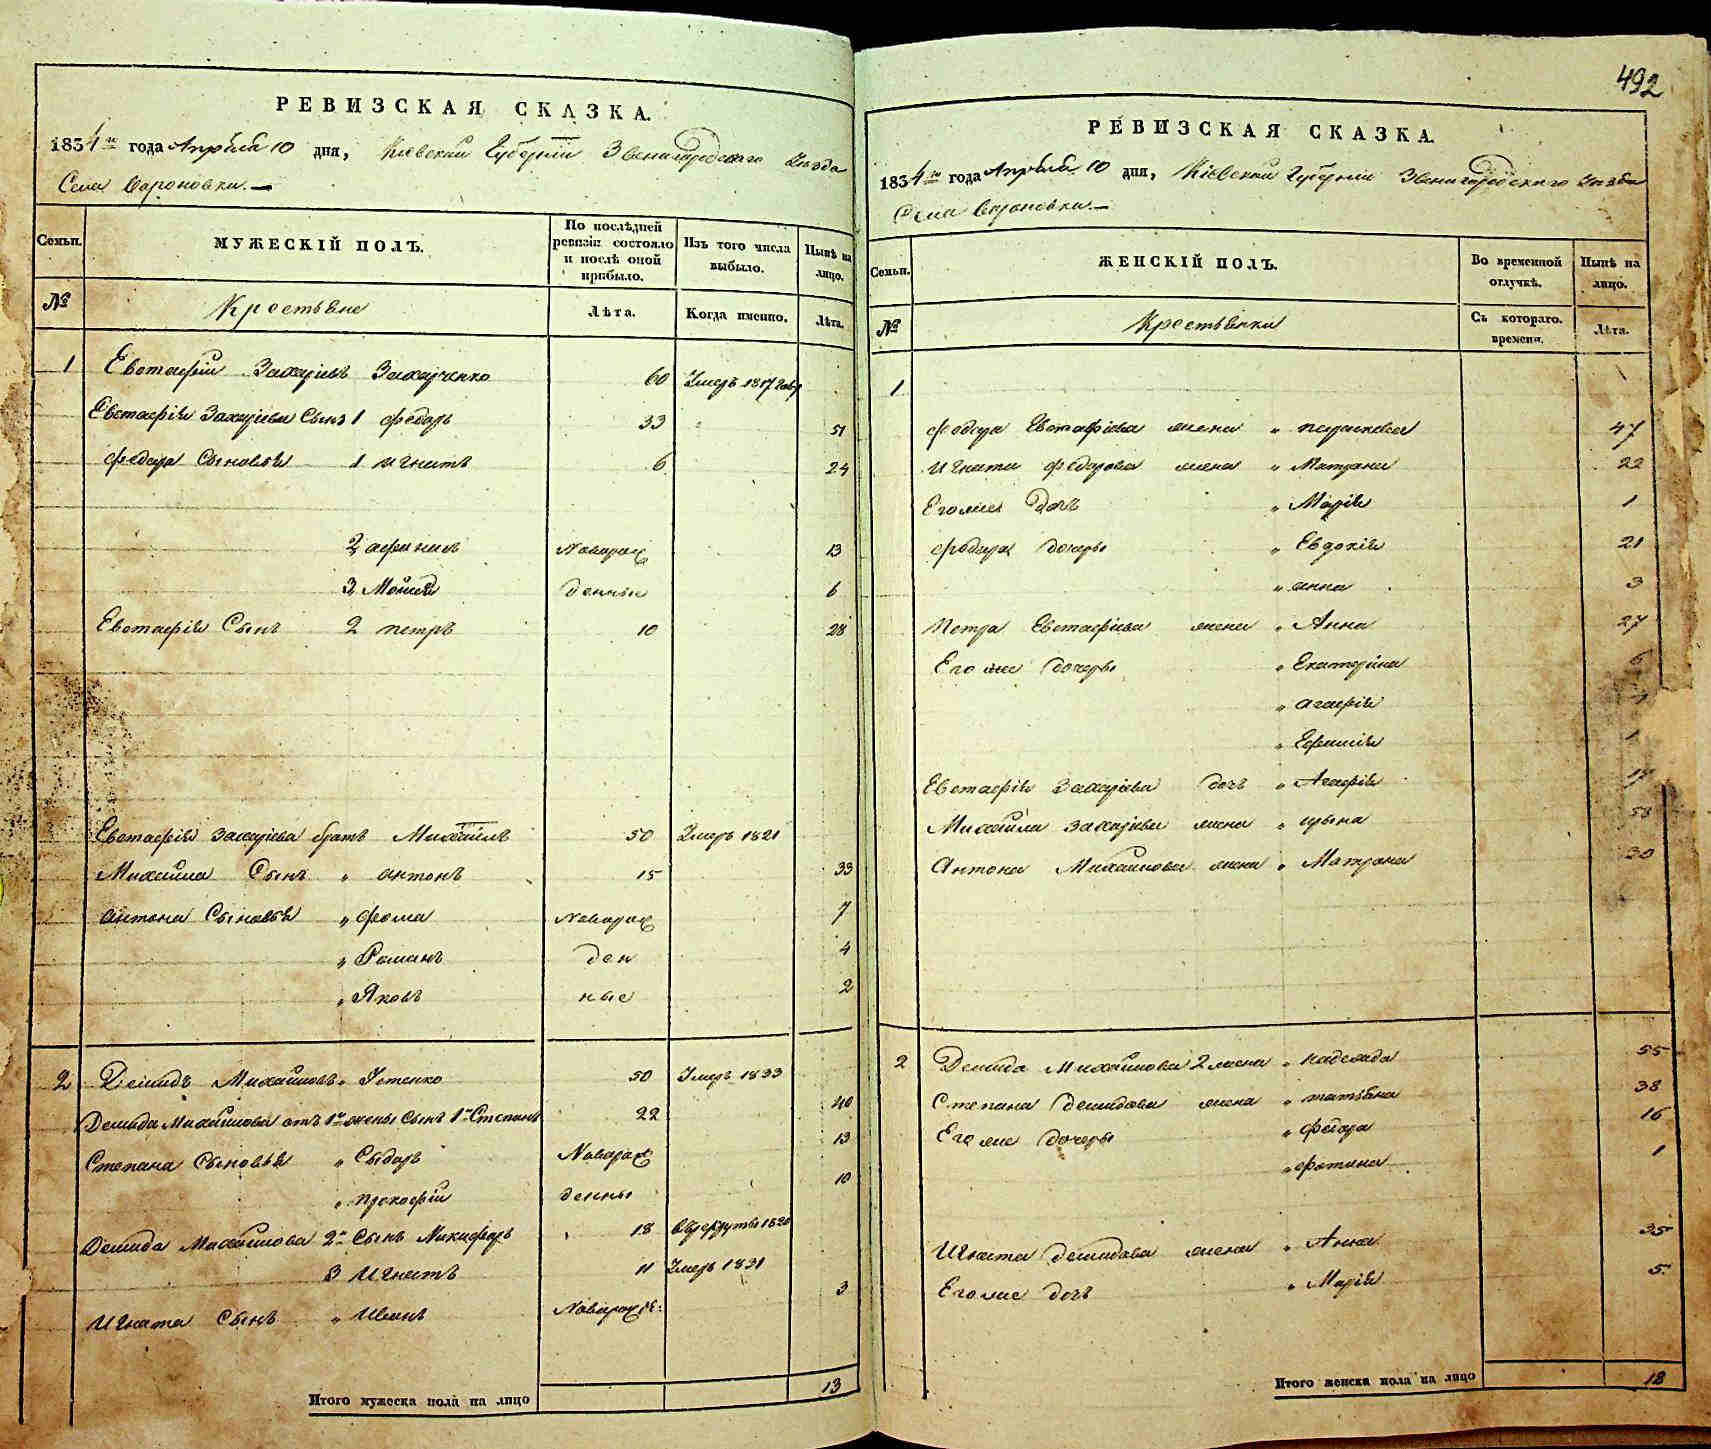 РЕВИЗСКАЯ СКАЗКА.
1834 го года Апреля 10 дня, Киевской Губернии Звенигородского Уезда
Села Вороновки.
Семьи.
МУЖЕСКІЙ ПОЛЪ.
По послѣдней ревизіи состояло и послѣ оной прибыло.
Изъ того числа выбыло.
Нынѣ на лицо.
№
Крестьяне
Лѣта.
Когда именно.
Лѣта.
1 Евстафий Захариевъ Захарченко 60 Умеръ 1817 году
Евстафія Захаріева Сынъ 1 Федоръ 33 51
Федора Сыновья 1 Игнатъ 6 24
2 Афанасий Новорож 13
3 Мойсей денные 6
Евстафія Сынъ 2 петръ 10 28
Евстафія Захаріева братъ Михайлъ 50 Умеръ 1821
Михайла Сынъ " антонъ 15 33
антона Сыновья " Фома Новорож 7
" Романъ ден 4
" Яковъ ные 2
2 Демидъ Михайловъ Устенко 50 Умеръ 1833
Демида Михайлова отъ 1й жены Сынъ 1й Степанъ 22 40
Степана Сыновья " Сидоръ Новорож 13
" прокофій денны 10
Демида Михайлова 2й Сынъ Никифоръ 18 Врекруты 1820
3 Игнатъ 11 Умеръ 1831
Игната Сынъ " Иванъ Новорожде: 3
Итого мужеска пола на лицо 13
492
РЕВИЗСКАЯ СКАЗКА.
1834 го года Апреля 10 дня, Киевской Губернии Звенигородского Уезда
Села Вороновки.
Семьи.
ЖЕНСКІЙ ПОЛЪ.
Во временной отлучкѣ.
Нынѣ на лицо.
№
Крестьянки
Съ котораго времени.
Лѣта.
1
Федора Евстафіева жена " 47
Игната Федорова жена " Матрона 22
Егоже Дочь " Марія 1
Федора дочери " Евдокія 21
" анна 3
Петра Евстафіева жена " Анна 27
Его же дочери " Екатерина 6
" агафія
" Ефимія 1
Евстафія Захаріева дочь " Агафія 17
Михайла Захаріева жена " ирина 53
Антона Михайлова жена " Матрона 30
2 Демида Михайлова 2 жена " надежда 55
Степана Демидова жена " татьяна 38
Его же дочери " Федора 16
" фотина 1
Игната Демидова жена " Анна 35
Егоже дочь " Марія 5
Итого женска пола на лицо 18